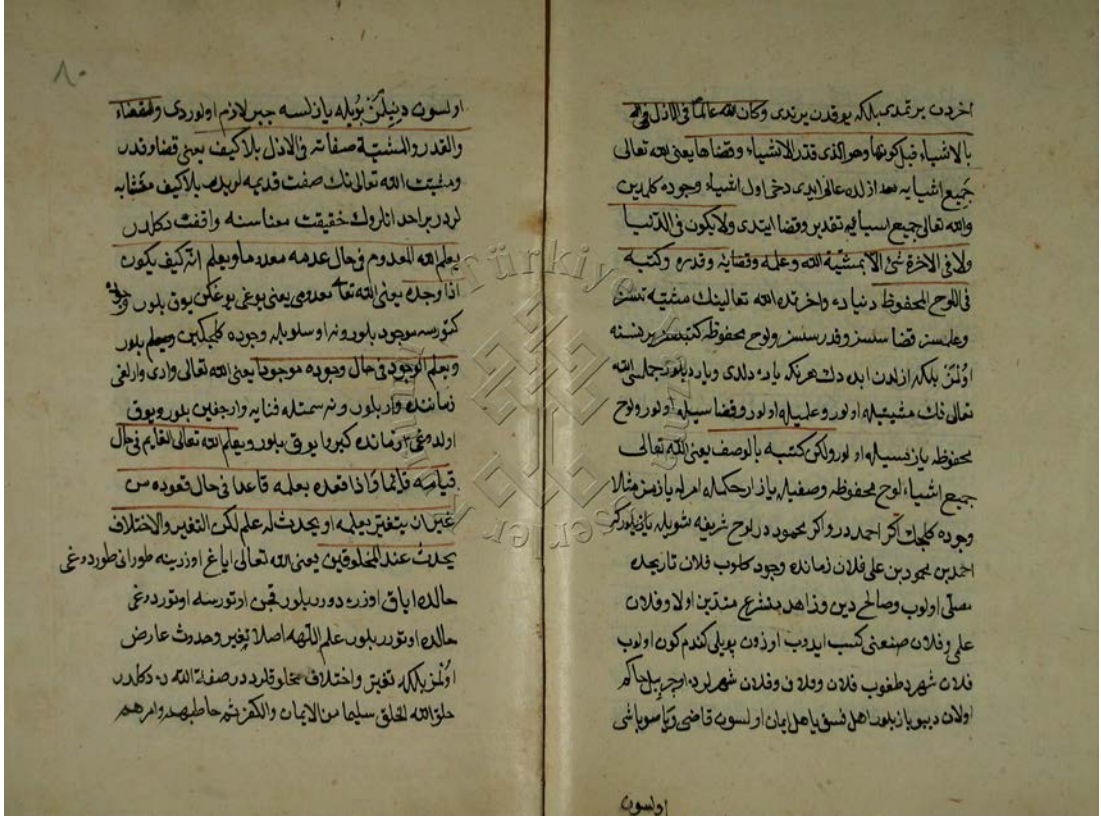 اخردن يرتمدى بلكه يوقدن يرتدى وكان الله عالما فى الازل
بالاشياء قبل كونها وهو الذى قدر الاشياء وقضاها يعنى الله تعالى
جميع اشيايه ازلده عالم ايدى دخى اول اشياء وجوده كلمدين
والله تعالى جميع اشيايه تقدير وقضا ايتدى ولا يكون فى الدنيا
ولا فى الاخرة شئ الا بمشيته الله وعلمه وقضايه وقدره وكتبه
فى اللوح المحفوظ دنياده واخرتده الله تعالينك مشيته سسز
وعلمسز قضا سسز وقدرسسز ولوح محفوظه كتبسز بر نسنه
اولمز بلكه ازلدن ابده دك هر نكه ديلدى جمله سى الله
تعالى نك مشيتيله اولور وعلميله اولور وقضاسيله اولور ولوح
محفوظه يازمسيله اولور ولكن كتبه بالوصف يعنى الله تعالى
جميع اشياء لوح محفوظه وصفيله يازار حكمله امريله يازمز مثلا
وجوده كلجك اكر احمددر واكر محموددر لوح شريفه شويله يازيلوركه
احمد بن محمود بن على فلان زمانده وجوده كلوب فلان تاريخده
مصلى اولوب وصالح دين وزاهد متدين اولا وفلان
علمى وفلان صنعتى كسب ايدوب اوزون بويلى كندم كون اولوب
فلان شهرده طغوب فلان وفلان وفلان شهرلرده حاكم
اولان ديو يازيلور اهل فسق يا اهل ايمان اولسون قاضى ويا صوباشى
اولسون
٨٠
اولسون دنيلمز بويله يازلسه جبر لازم اولوردى والقضاء
والقدر والمشيّة صفاته فى الازل بلا كيف يعنى قضا وقدر
ومشيت الله تعالى نك صفت قديمه لريدر بلا كيف متشابه
لردر بر احد انلروك حقيقت معناسنه واقف دكلدر
يعلم الله المعدوم فى حال عدمه معدوما ويعلم انه كيف يكون
اذا وجده يعنى الله تعالى معدومى يعنى يوغى يوغكن يوق بلور
كتورسه موجود بلور ونه اوسلوبله وجوده كلجكين بلور
ويعلم الموجود فى حال وجوده موجودا يعنى الله تعالى وارى وارلغى
زماننده وار بلور ونه سمتله فنايه وارجغين بلور ويوق
اولدوغى زمانده كيرو يوق بلور ويعلم الله تعالى القايم فى حال
قيامه قائما واذا قعد يعلمه قاعدا فى حال قعوده من
غير ان يتغير علمه او يحدث له علم لكن التغير والاختلاف
يحدث عند المخلوقين يعنى الله تعالى اياغ اوزرينه طورانى طوردوغى
حالده اياق اوزره دورر بلور قچن اوتورسه اوتوردوغى
حالده اوتورر بلور علم الهه اصلا تغير وحدوث عارض
اولمز بلكه تغير واختلاف مخلوقلرده در صفة الله ده دكلدر
خلق الله الخلق سليما من الايمان والكفر ثم خاطبهم وامرهم